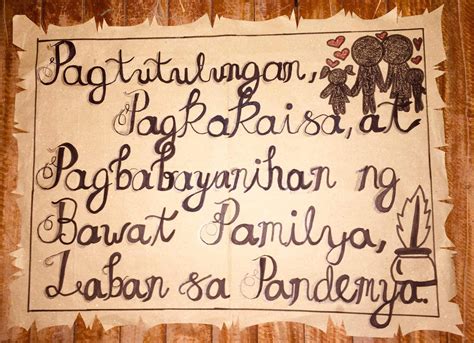 Pagtutulungan,
Pagkakaisa, at
Pagbabayanihan ng
Bawat Pamilya,
Laban sa Pandemya.